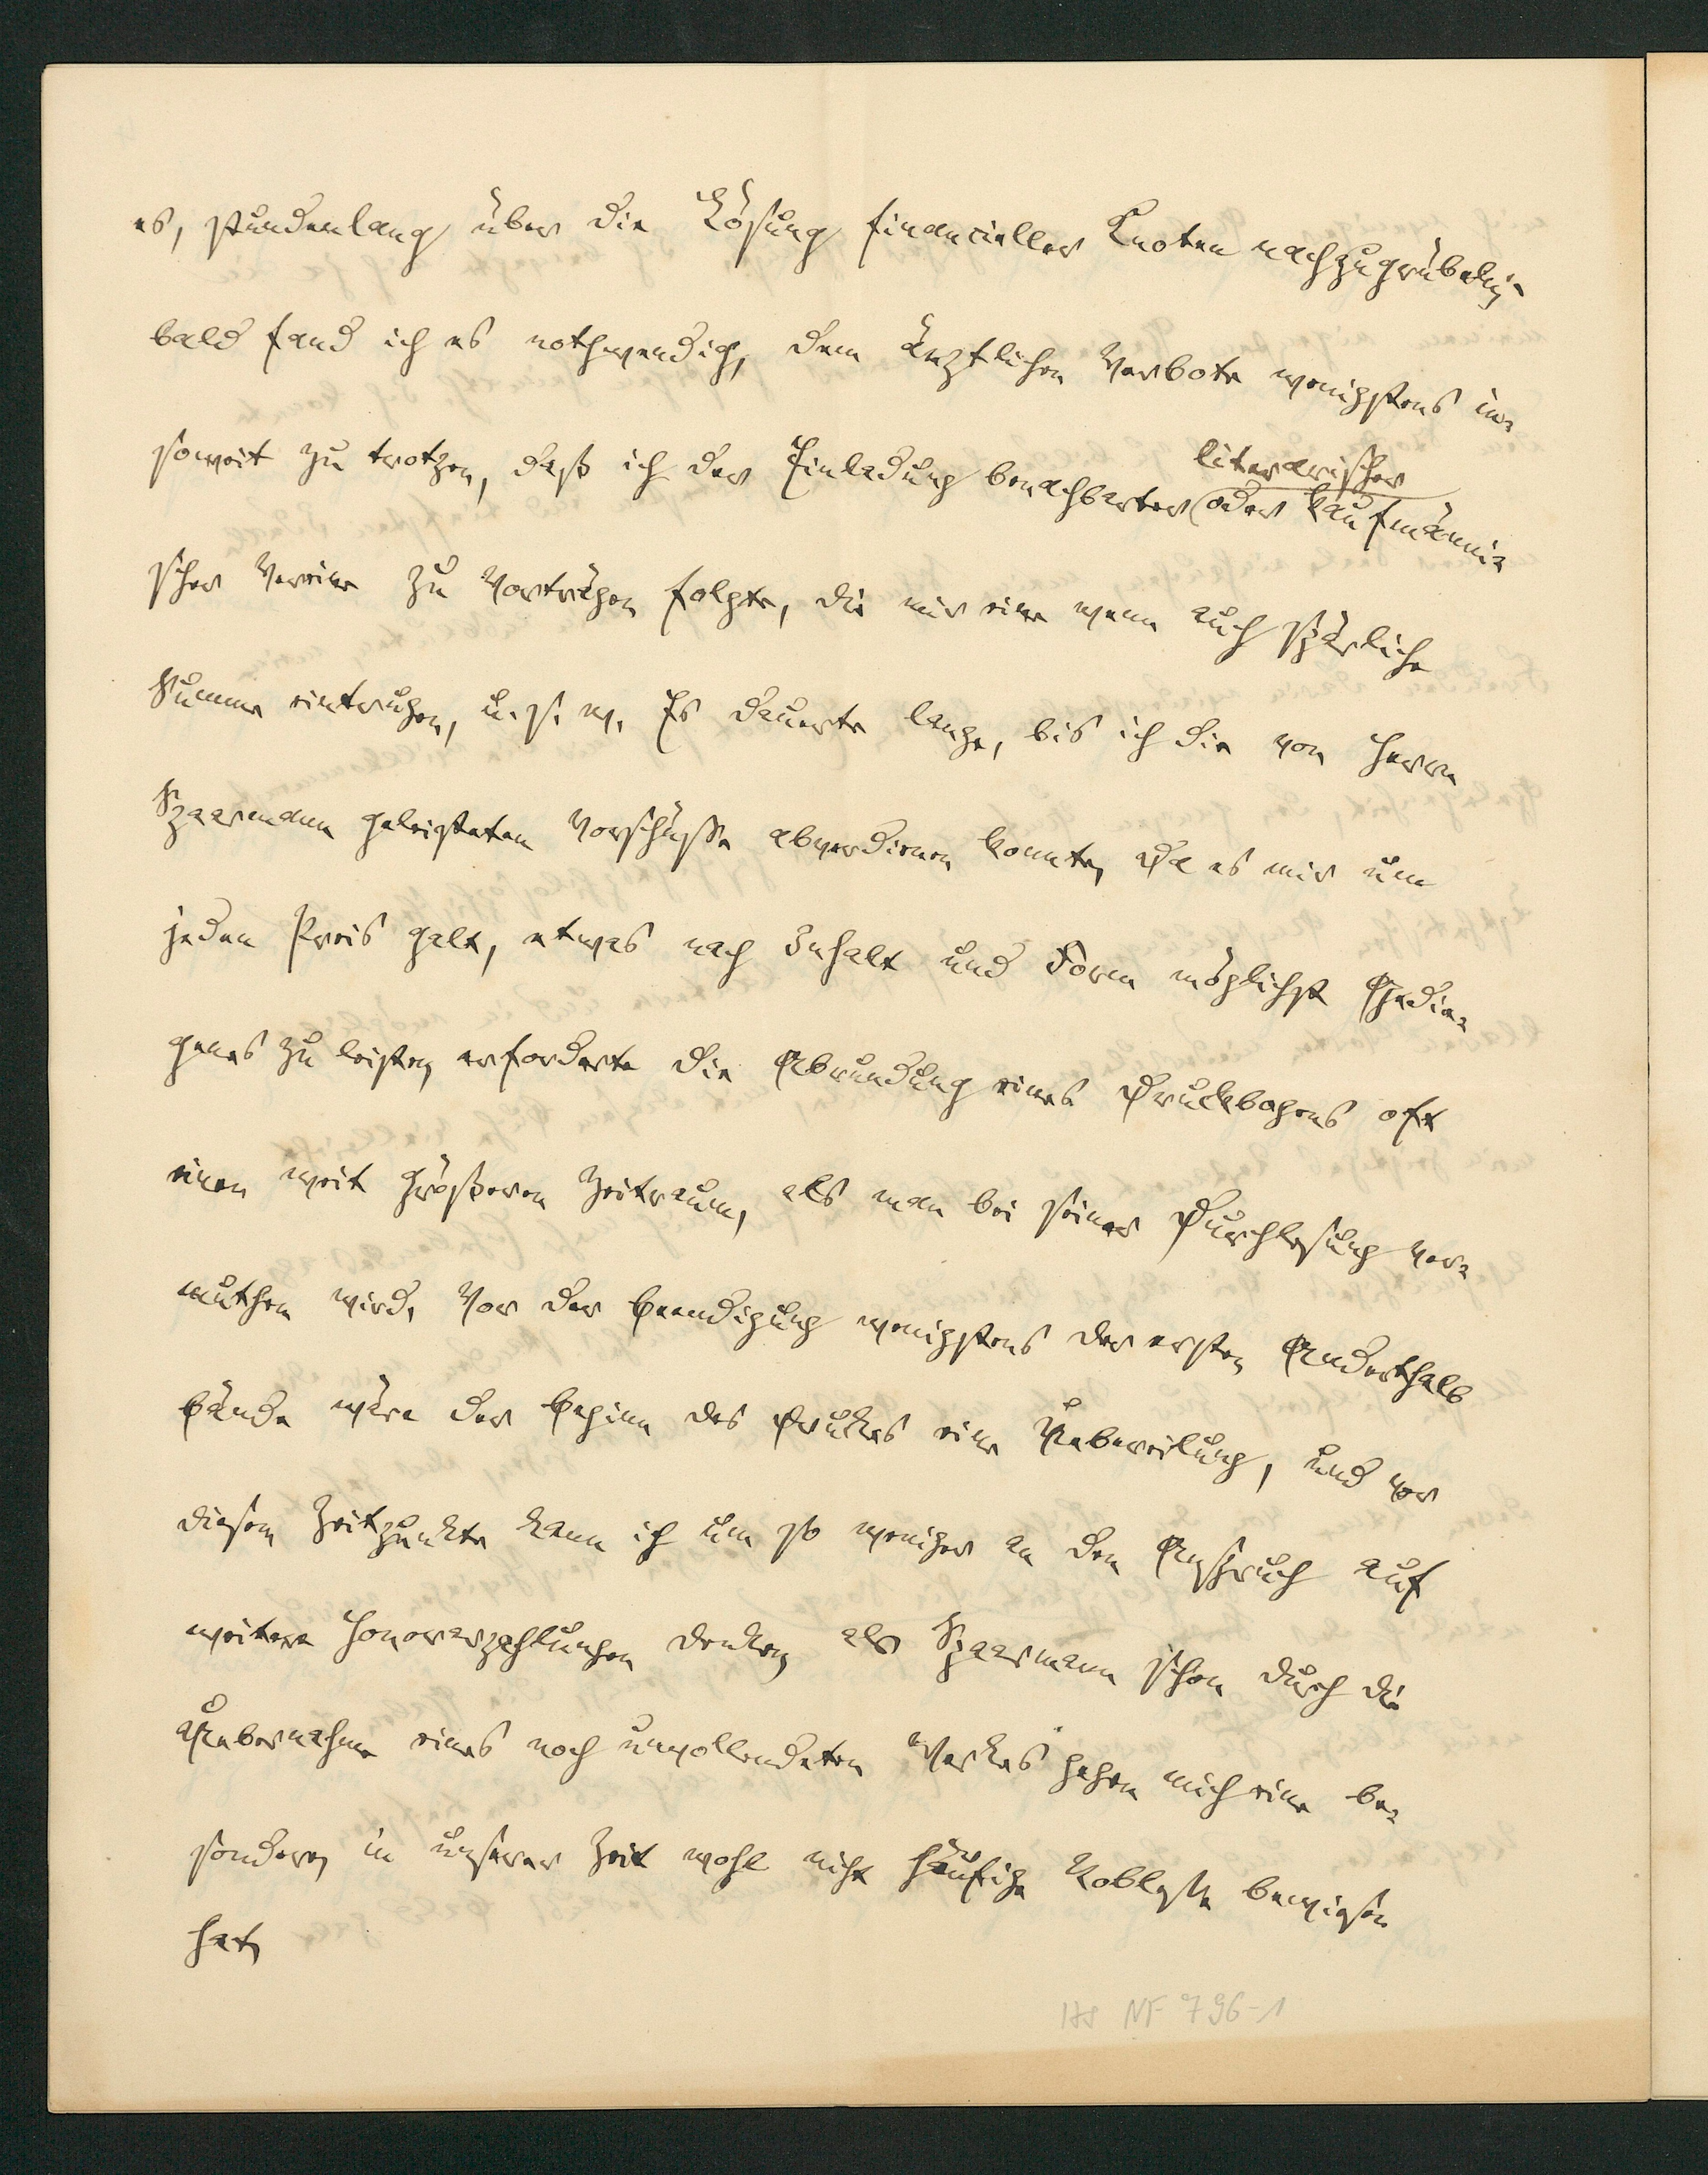 es, stundenlang über die Lösung financieller Knoten nachzugrübeln;
bald fand ich es nothwendig, dem ärztlichen Verbote wenigstens in-
soweit zu trotzen, daß ich der Einladung benachbarter literarischer
oder kaufmänni-
scher Vereine zu Vorträgen folgte, die mir eine wenn auch spärliche
Summe eintrugen, u. s. w. Es dauerte lange, bis ich die von Herrn
Spaarmann geleisteten Vorschüsse abverdienen konnte, Da es mir um
jeden Preis galt, etwas nach Inhalt und Form möglichst Gedie-
genes zu leisten, erforderte die Abrundung eines Druckbogens oft
einen weit größeren Zeitraum, als man bei seiner Durchlesung ver-
muthen wird. Vor der Beendigung wenigstens der ersten Anderthalb
Bände wäre der Beginn des Druckes eine Uebereilung, und vor
diesem Zeitpunkte kann ich um so weniger an den Anspruch auf
weitere Honorarzahlungen denken, als Spaarmann schon durch die
Uebernahme eines noch unvollendeten Werkes gegen mich eine be-
sondere, in unserer Zeit wohl nicht häufige Noblesse bewiesen
hat,
Hs NF 796-1